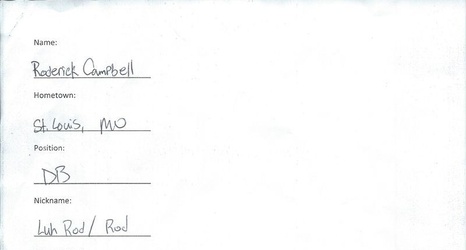 Name:
Roderick Campbell
Hometown:
St. Louis, MO
Position:
DB
Nickname:
Luh Rod / Rod